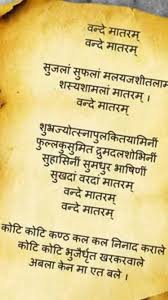 वन्दे मातरम्
वन्दे मातरम्
सुजलां सुफलां मलयजशीतलाम
शस्यशामलां मातरम ।
वन्दे मातरम्
शुभ्रज्योत्स्नापुलकितयामिनीं
फुल्लकुसुमित द्रुमदलशोभिनीं
सुहासिनीं सुमधुर भाषिणीं
सुखदां वरदां मातरम्
वन्दे मातरम्
वन्दे मातरम्
कोटि कोटि कण्ठ कल कल निनाद कराले
कोटि कोटि भुजैर्धृत खरकरवाले
अबला केन मा एत बले ।